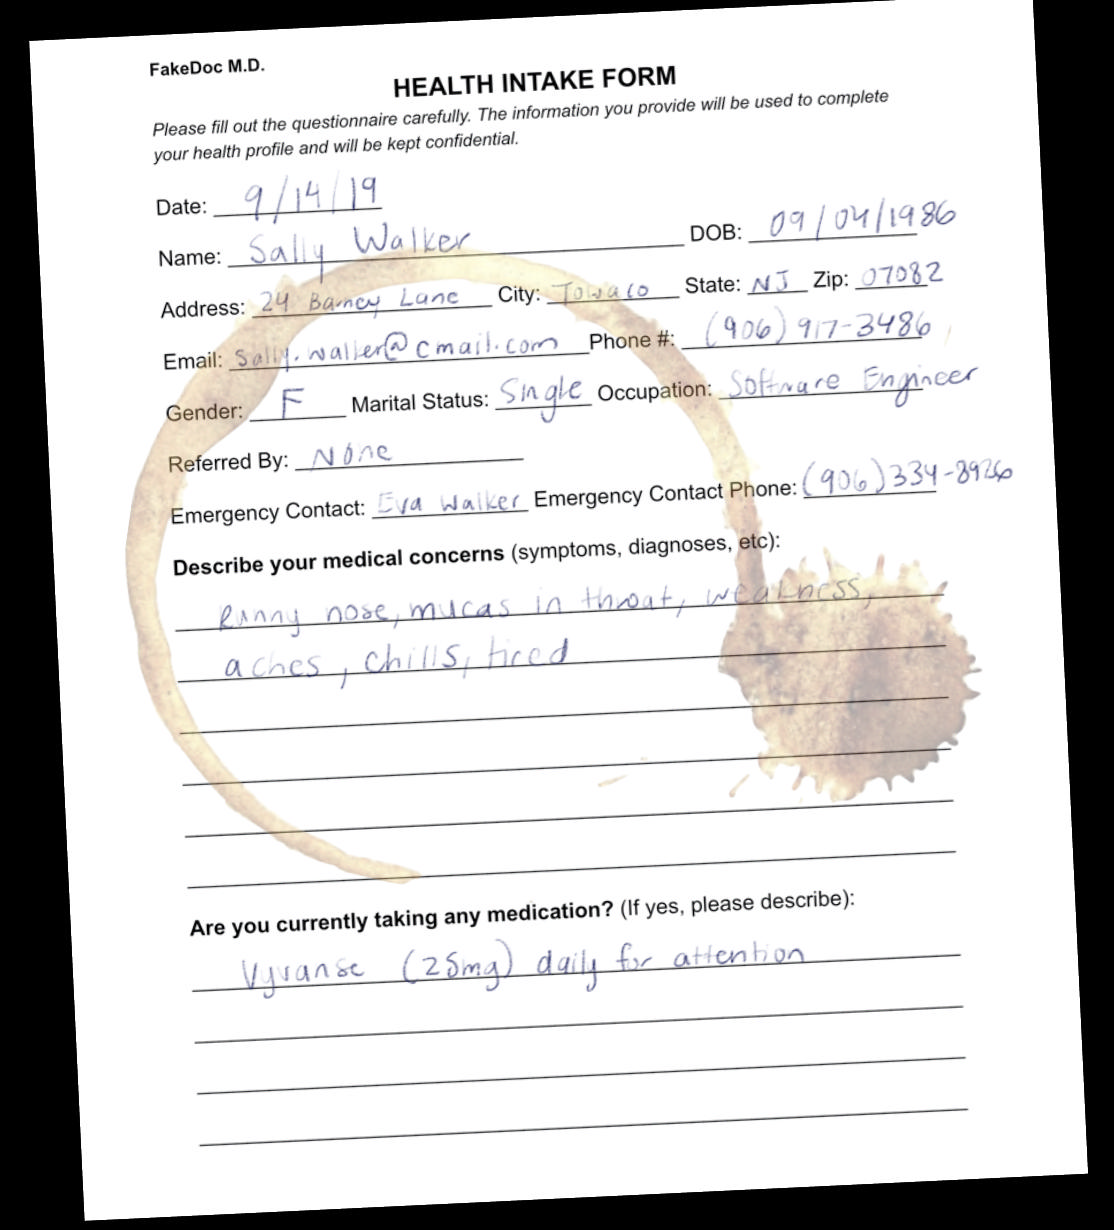 FakeDoc M.D.
HEALTH INTAKE FORM
Please fill out the questionnaire carefully. The information you provide will be used to complete
your health profile and will be kept confidential.
Date: 9/14/19
Name: Sally Walker DOB: 09/04/1986
Address: 24 Barney Lane City: Towaco State: NJ Zip: 07082
Email: Sally.walker@cmail.com Phone #: (906) 917-3486
Gender: F Marital Status: Single Occupation: Software Engineer
Referred By: None
Emergency Contact: Eva Walker Emergency Contact Phone: (906)334-8926
Describe your medical concerns (symptoms, diagnoses, etc):
Runny nose, mucas in throat, weakness,
aches, chills, tired
Are you currently taking any medication? (If yes, please describe):
Vyvanse (25mg) daily for attention